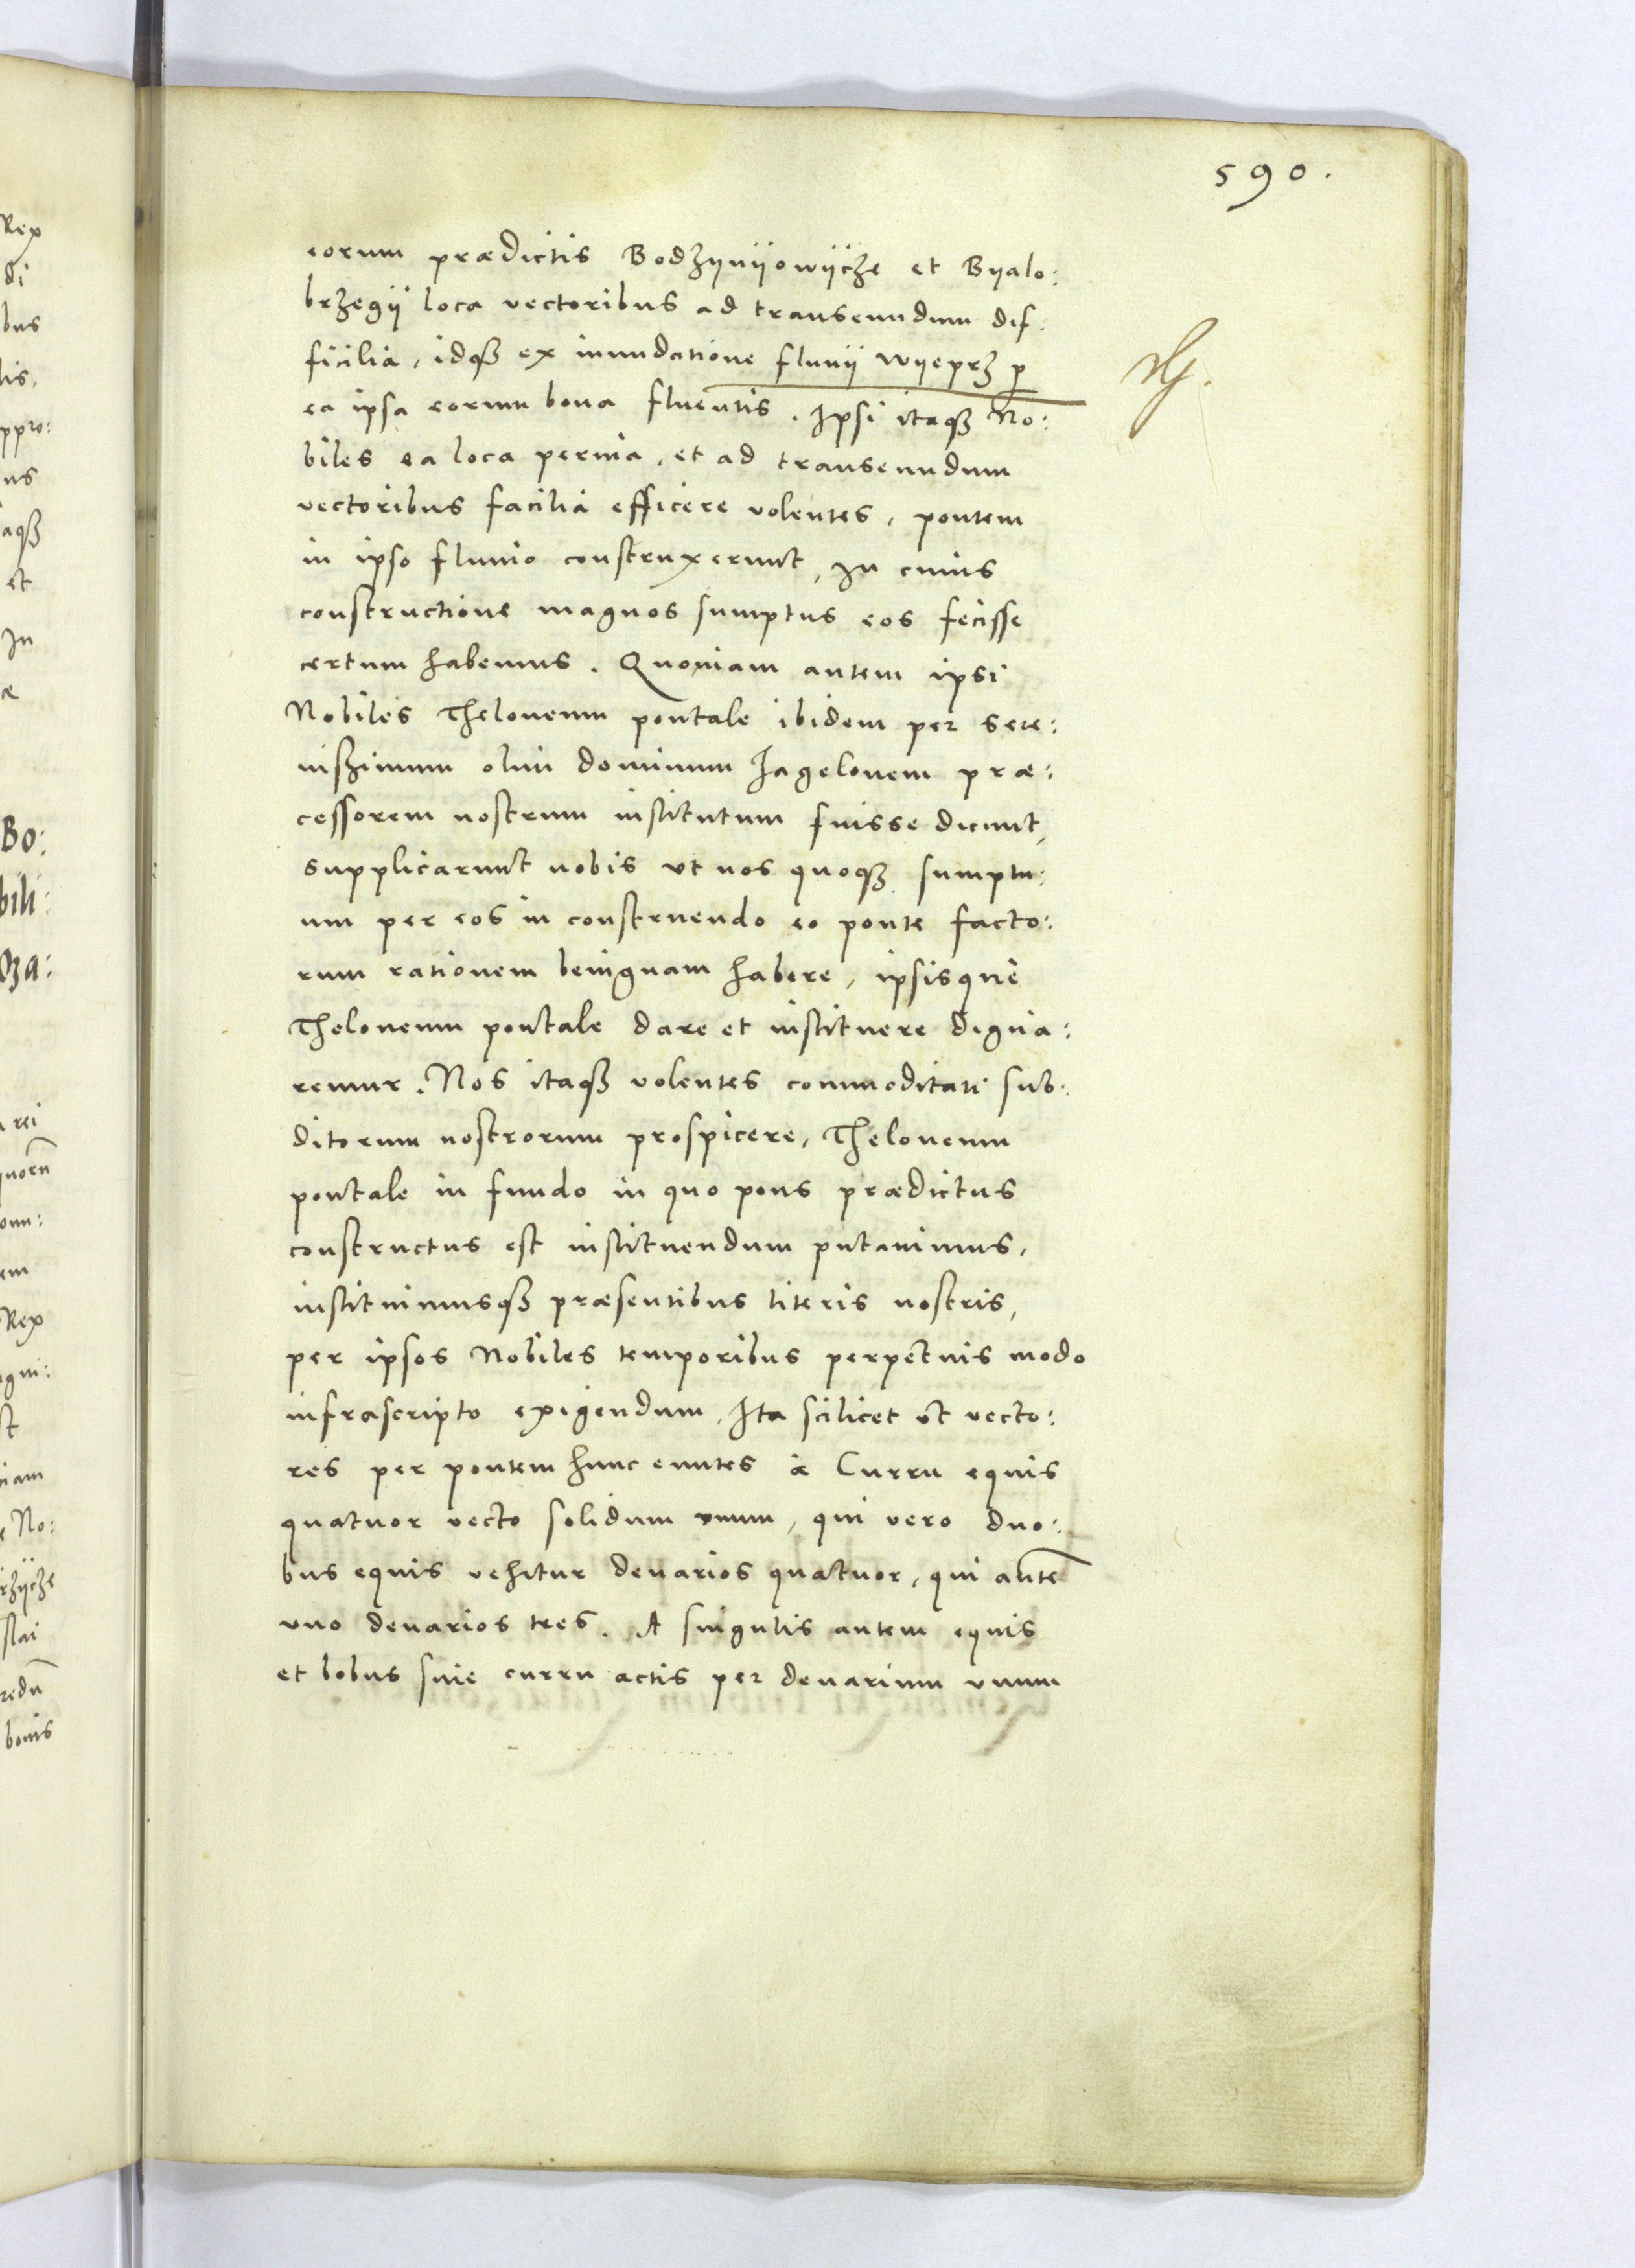 590.
eorum prædictis Bodzÿnÿowÿcze et Bÿalo:
brzegÿ loca vectoribus ad transeundum dif:
ficilia, idq3 ex inundatione fluuii Wÿeprz p
ea ipsa eorum bona fluentis. Ipsi itaq3 No:
biles ea loca peruia, et ad transeundum
vectoribus facilia efficere volentes, pontem
in ipso fluuio construxerunt, In cuius
constructione magnos sumptus eos fecisse
certum habemus. Quoniam autem ipsi
Nobiles Theloneum pontale ibidem per Sere:
nißimum olim dominum Jagelonem præ:
cessorem nostrum institutum fuisse dicunt,
supplicarunt nobis vt nos quoq3 sumptu:
um per eos in construendo eo ponte facto:
rum rationem benignam habere, ipsisque
Theloneum pontale dare et instituere digna:
remur. Nos itaq3 volentes commoditati sub:
ditorum nostrorum prospicere, Theloneum
pontale in fundo in quo pons prædictus
constructus est instituendum putauimus,
instituimusq3 præsentibus literis nostris,
per ipsos Nobiles temporibus perpetuis modo
infrascripto exigendum, Ita scilicet vt vecto:
res per pontem hunc euntes à Curru equis
quatuor vecto solidum vnum, qui vero duo:
bus equis vehitur denarios quatuor, qui aute
vno denarios tres. A singulis autem equis
et bobus sine curru actis per denarium vnum